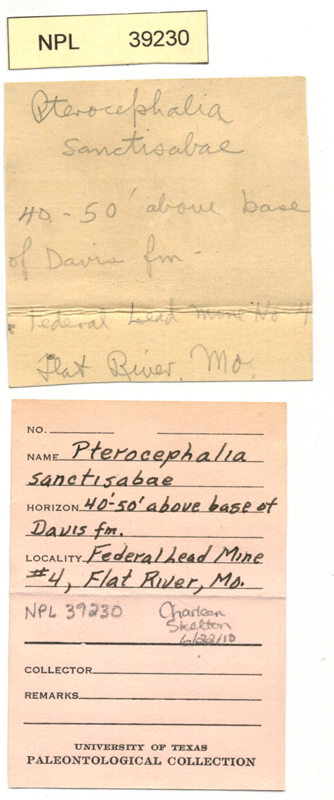 NPL 39230
Pterocephalia
sanctisabae
40-50' above base
of Davis fm.
Federal Lead Mine No 4
Flat River, Mo.
NO.
NAME Pterocephalia
sanctisabae
HORIZON 40'-50' above base of
Davis fm.
LOCALITY Federal Lead Mine
#4, Flat River, Mo.
NPL 39230 Charleen
Skelton
6/22/10
COLLECTOR
REMARKS
UNIVERSITY OF TEXAS
PALEONTOLOGICAL COLLECTION